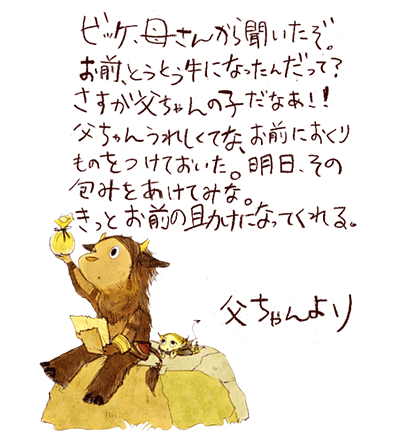 ビッケ、母さんから聞いたぞ。
お前、とうとう牛になったんだって?
さすが父ちゃんの子だなあ!!
父ちゃんうれしくてな、お前におくり
ものをつけておいた。明日、その
包みをあけてみな。
きっとお前の助けになってくれる。
父ちゃんより